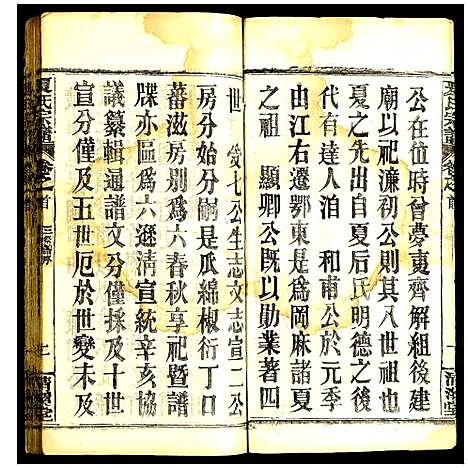 公在位時曾夢夷齊解組後建
廟以祀濂初公則其八世祖也
夏之先出自夏后氏明德之後
代有達人迨和甫公於元季
由江右遷鄂東是為岡麻諸夏
之祖顯卿公既以勛業著四
世受七公生志文志宣二公
房分始分嗣是瓜綿椒衍丁口
蕃滋房別為六春秋享祀暨譜
牒亦區為六遜清宣統辛亥協
議纂輯通譜文分僅採及十世
宣分僅及五世厄於世變未及
夏氏宗譜
卷之首
清潔堂